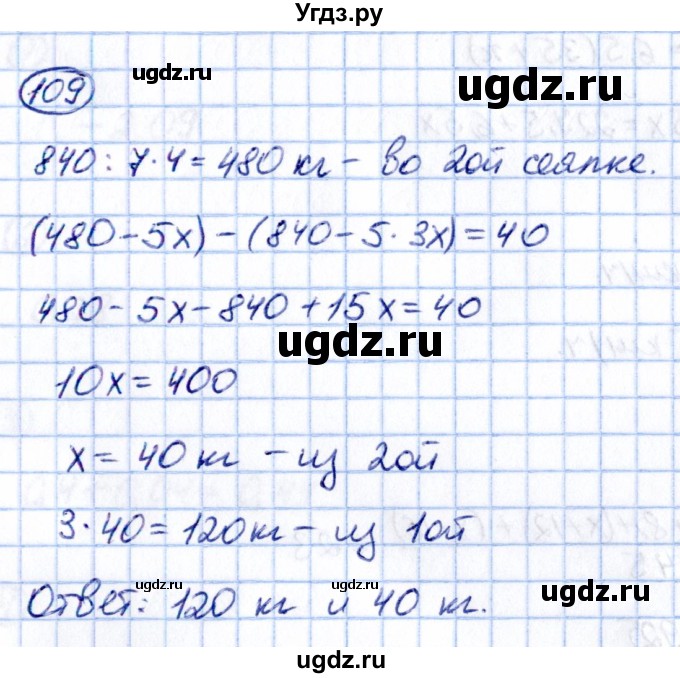 Угдз.ру
ugdz.ru
ugdz.ru
109
840 : 7 · 4 = 480 кг – во 2ой сеялке.
(480 – 5x) – (840 – 5 · 3x) = 40
480 – 5x – 840 + 15x = 40
ugdz.ru
10x = 400
x = 40 кг – из 2ой
3 · 40 = 120 кг – из 1ой
ugdz.ru
ugdz.ru
ugdz.ru
Ответ: 120 кг и 40 кг.
ugdz.ru